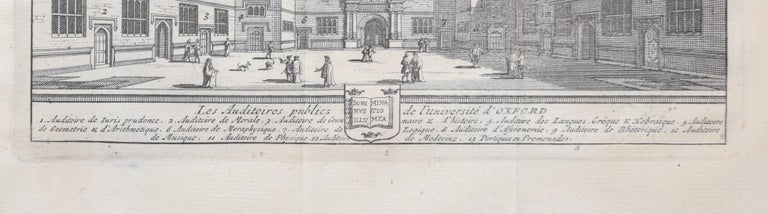 2 3 4 5 6
Les Auditoires publics de l'université d'OXFORD
DOMI MINA
NVS TIO
ILLV MEA
1. Auditoire de Iuris prudence. 2 Auditoire de Morale. 3 Auditoire de Gram maire & d'Histoire. 4 Auditoire des Langues Gréque & Hebraïque. 5 Auditoire
de Geometrie & d'Arithmetique. 6 Auditoire de Metaphysique. 7 Auditoire de Logique. 8 Auditoire d'Astronomie. 9 Auditoire de Rhetorique. 10 Auditoire
de Musique. 11 Auditoire de Physique. 12 de Medecine. 13 Portiques ou Promenades.